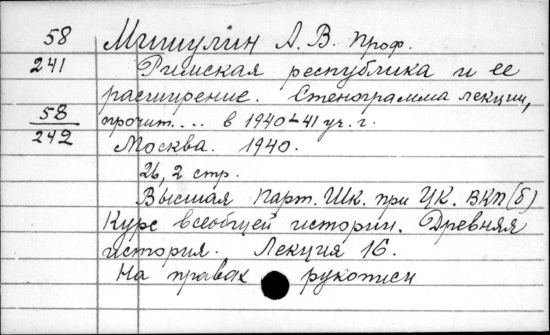 58 Мишулин А. В. проф.
241 Римская республика и ее
расширение. Стенограмма лекции,
58 прочит.... в 1940-41 уч. г.
242 Москва. 1940.
26, 2 стр.
Высшая Парт. Шк. при ЦК. ВКП(б)
Курс всеобщей истории. Древняя
история. Лекция 16.
На правах рукописи